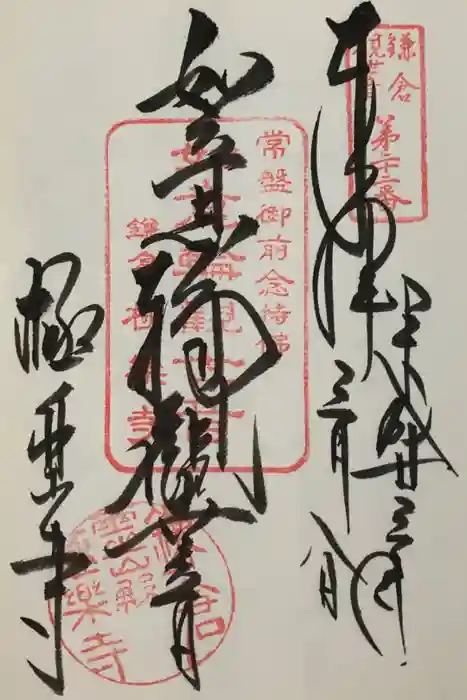 奉拝
平成廿三年
三月八日
鎌倉
観世音
第二十二番
如意輪観世音
常盤御前念持佛
如意輪観世音
鎌倉 極楽寺
極楽寺
鎌倉
霊山
極樂寺